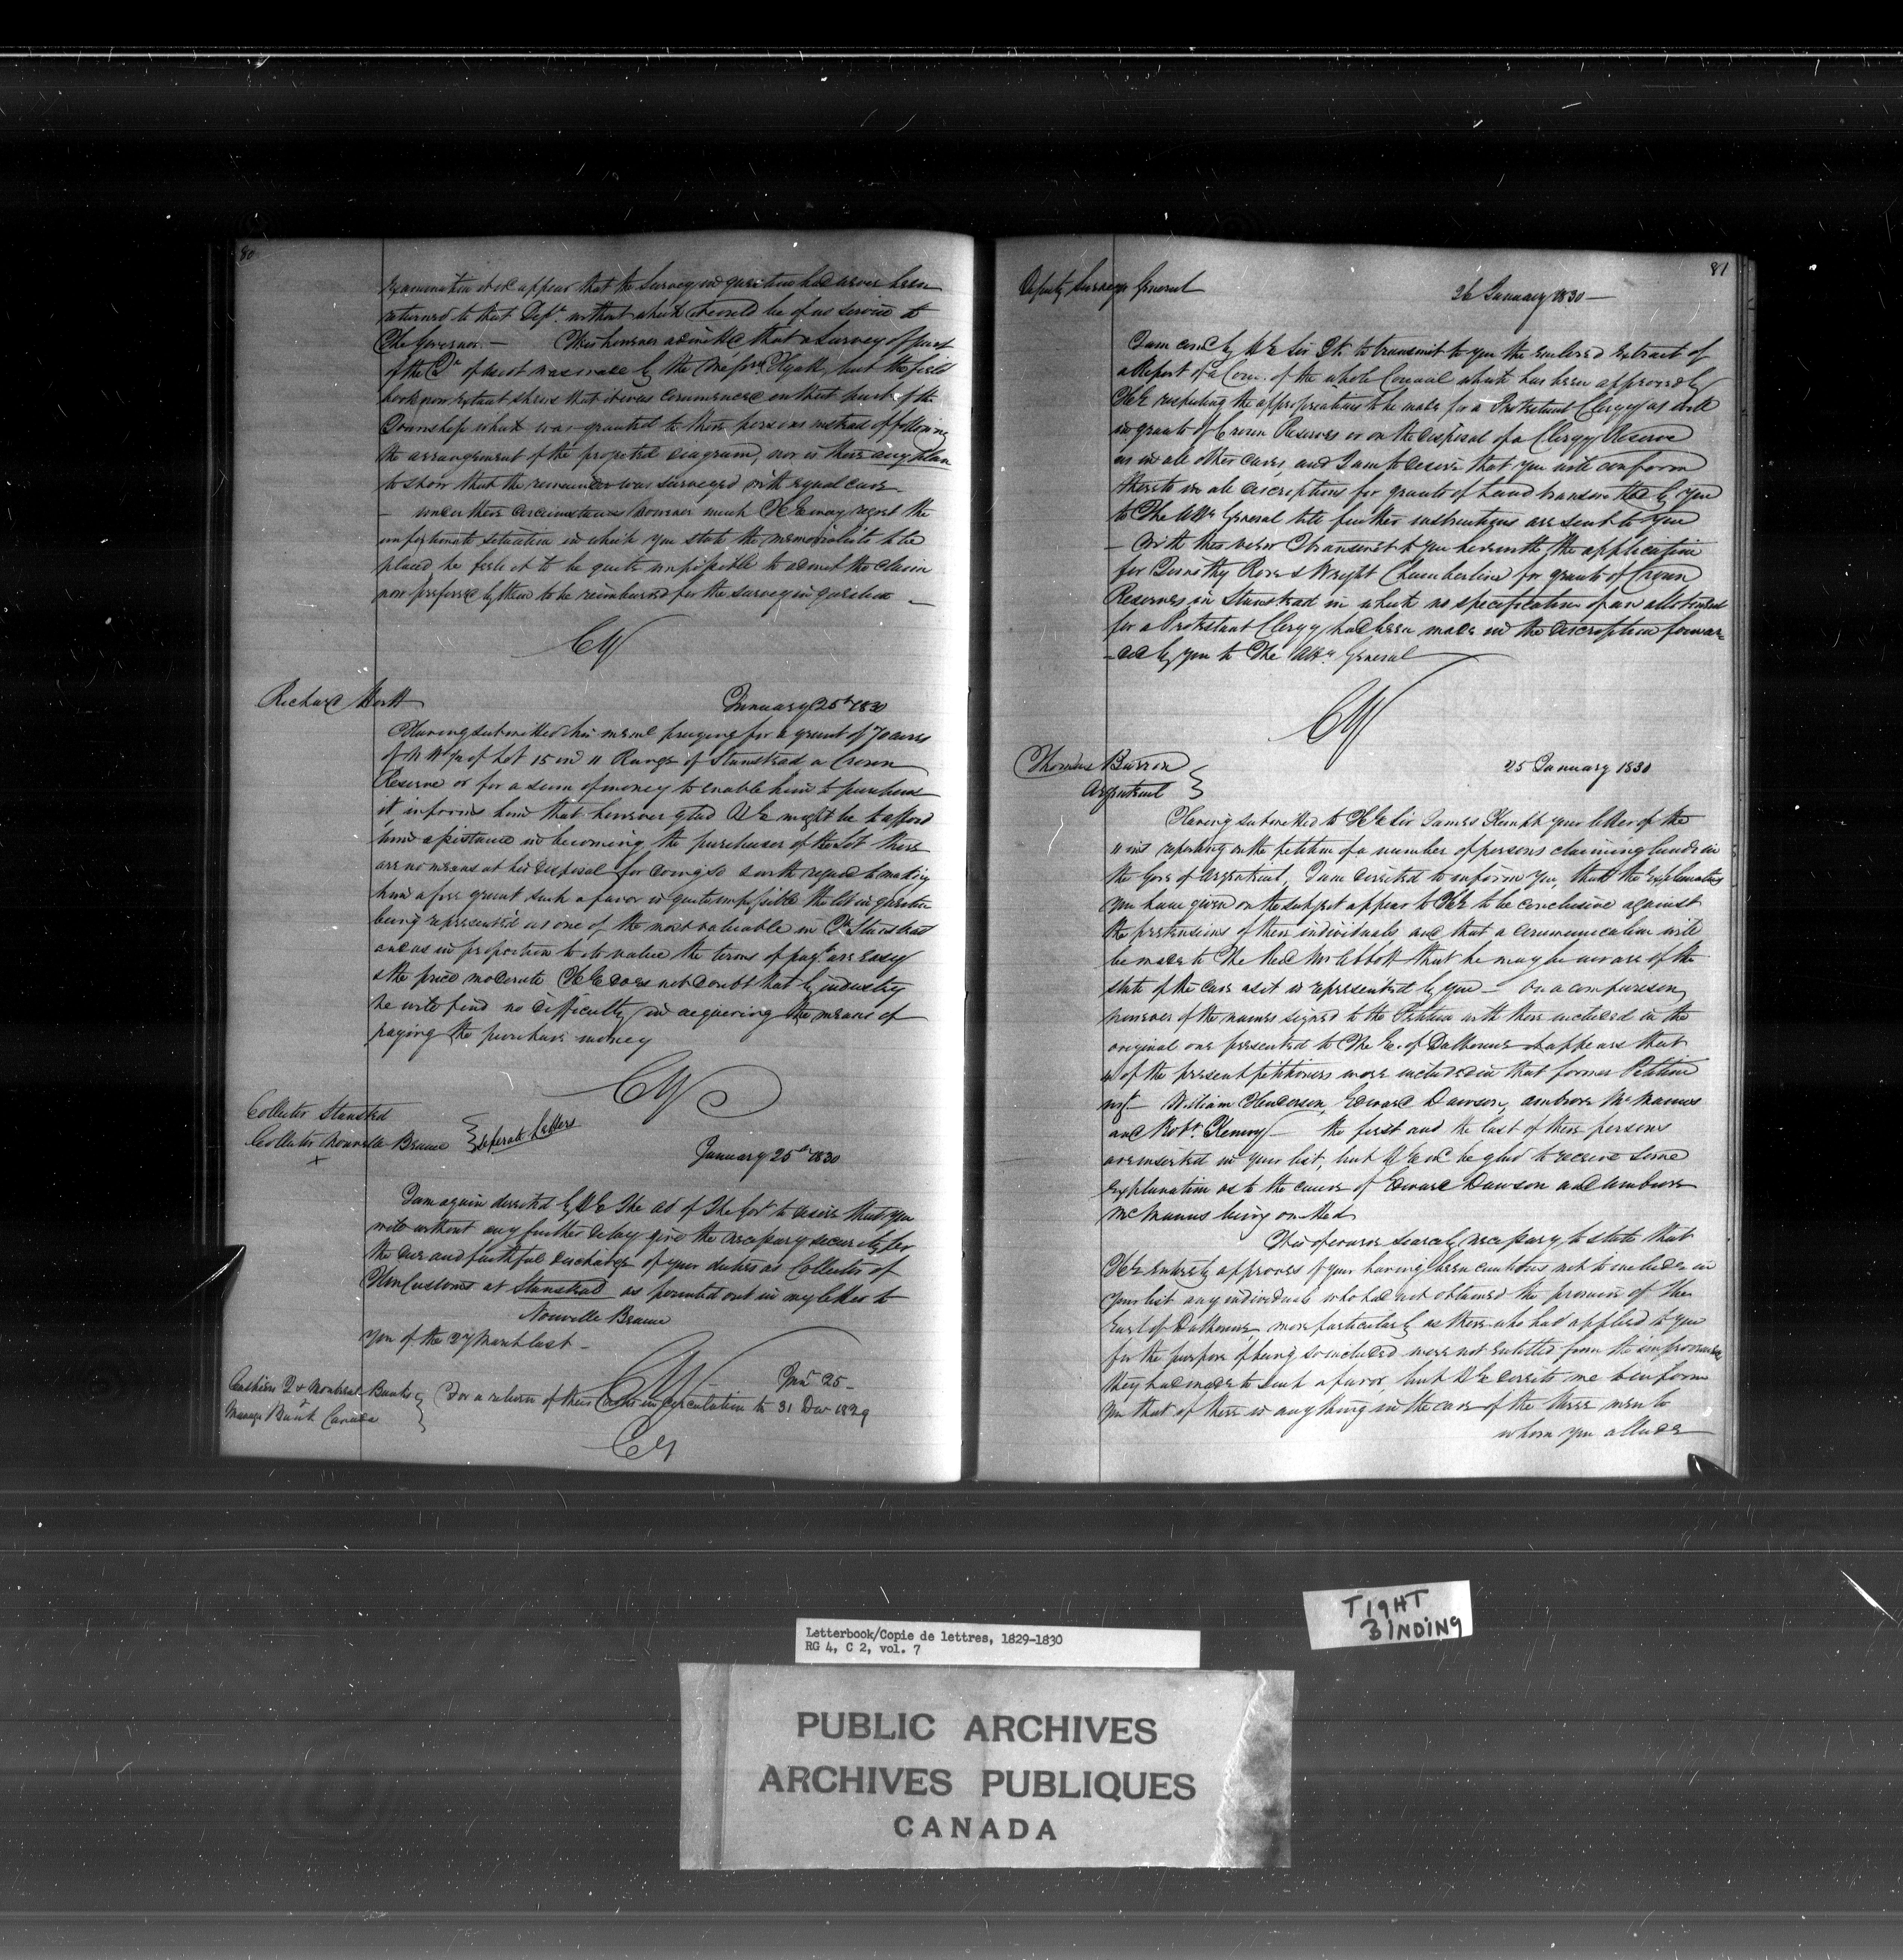 80
examination it wd appear that the Survey in question had never been
returned to that Dept. without which it could be of no service to
The Governor. — It is however admitted that a Survey of part
of the Tp of Ascot was made by the Messrs Hyatt, but the field
book now extant shews that it was commenced on that part of the
Township which was granted to these persons instead of following
the arrangement of the projected diagram, nor is there any plan
to show that the remainder was surveyed with equal care —
— under these circumstances however much HE may regret the
unfortunate situation in which you state the memorialists to be
placed he feels it to be quite impossible to admit the claim
now preferred by them to be reimbursed for the survey in question —
CY
Richard
January 25th 1830
Having submitted his meml praying for a grant of 70 acres
of N W ¼ of Lot 15 in 11 Range of Stanstead a Crown
Reserve or for a sum of money to enable him to purchase
it, informs him that however glad HE might be to afford
him assistance in becoming the purchaser of the Lot there
are no means at his disposal for doing so & with regard to making
him a free grant such a favor is quite impossible the lot in question
being represented as one of the most valuable in Tp Stanstead
and as in proportion to its value the terms of payt are easy
& the price moderate HE does not doubt that by industry
he will find no difficulty in acquiring the means of
paying the purchase money
CY
Collector Stansted
Collector Nouvelle Beauce } Seperate Letters
x
January 25th 1830
I am again directed by HE The Ad of The Govt to desire that you
will without any further delay give the necessary security for
the due and faithful discharge of your duties as Collector of
HM Customs at Stanstead as pointed out in my letter to
Nouvelle Beauce
you of the 27 March last —
CY
Jany 25 —
Cashiers Q & Montreal Banks
Manager Bank Canada } For a return of their Notes in Circulation to 31 Decr 1829
CY
81
Deputy Surveyor General
26 January 1830 —
I am comd by HE Sir JK to transmit to you the enclosed extract of
a Report of a Com. of the whole Council which has been approved by
HE respecting the appropriations to be made for a Protestant Clergy as well
in grants of Crown Reserves or on the disposal of a Clergy Reserve
as in all other cases, and I am to desire that you will conform
thereto in all descriptions for grants of Land transmitted by you
to The Atty General till further instructions are sent to you
— With this view I transmit to you herewith the application
for Timothy Rose & Wright Chamberlin for grants of Crown
Reserves in Stanstead in which no specification of an allotment
for a Protestant Clergy had been made in the description forwar=
-ded by you to The Atty General
CY
Thomas Barron
Argenteuil }
25 January 1830
Having submitted to HE Sir James Kempt your letter of the
11 inst reporting on the petition of a number of persons claiming lands in
the Gore of Argenteuil, I am directed to inform you, that the explanations
you have given on the subject appear to HE to be conclusive against
the pretensions of these individuals and that a communication will
be made to The Revd Mr Abbott that he may be aware of the
state of the case as it is represented by you — On a comparison
however of the names signed to the Petition with those enclosed in the
original one presented to The E. of Dalhousie it appears that
4 of the present petitioners were included in that former Petition
vizt — William Henderson, Edward Dawson, Ambrose McManus
and Robt. Kenny — the first and the last of these persons
are inserted in your list, but HE wd be glad to receive some
explanation as to the cause of Edward Dawson and Ambrose
McManus being omitted
It is of course scarcely necessary to state that
HE entirely approves of your having been cautious not to include in
your list any individuals who had not obtained the promise of the
Earl of Dalhousie, more particularly as those who had applied to you
for the purpose of being so included were not entitled from the improvements
they had made to such a favor, but HE directs me to inform
you that if there is any thing in the case of the three men to
whom you allude
TIGHT
BINDING
Letterbook/Copie de lettres, 1829-1830
RG 4, C 2, vol. 7
PUBLIC ARCHIVES
ARCHIVES PUBLIQUES
CANADA